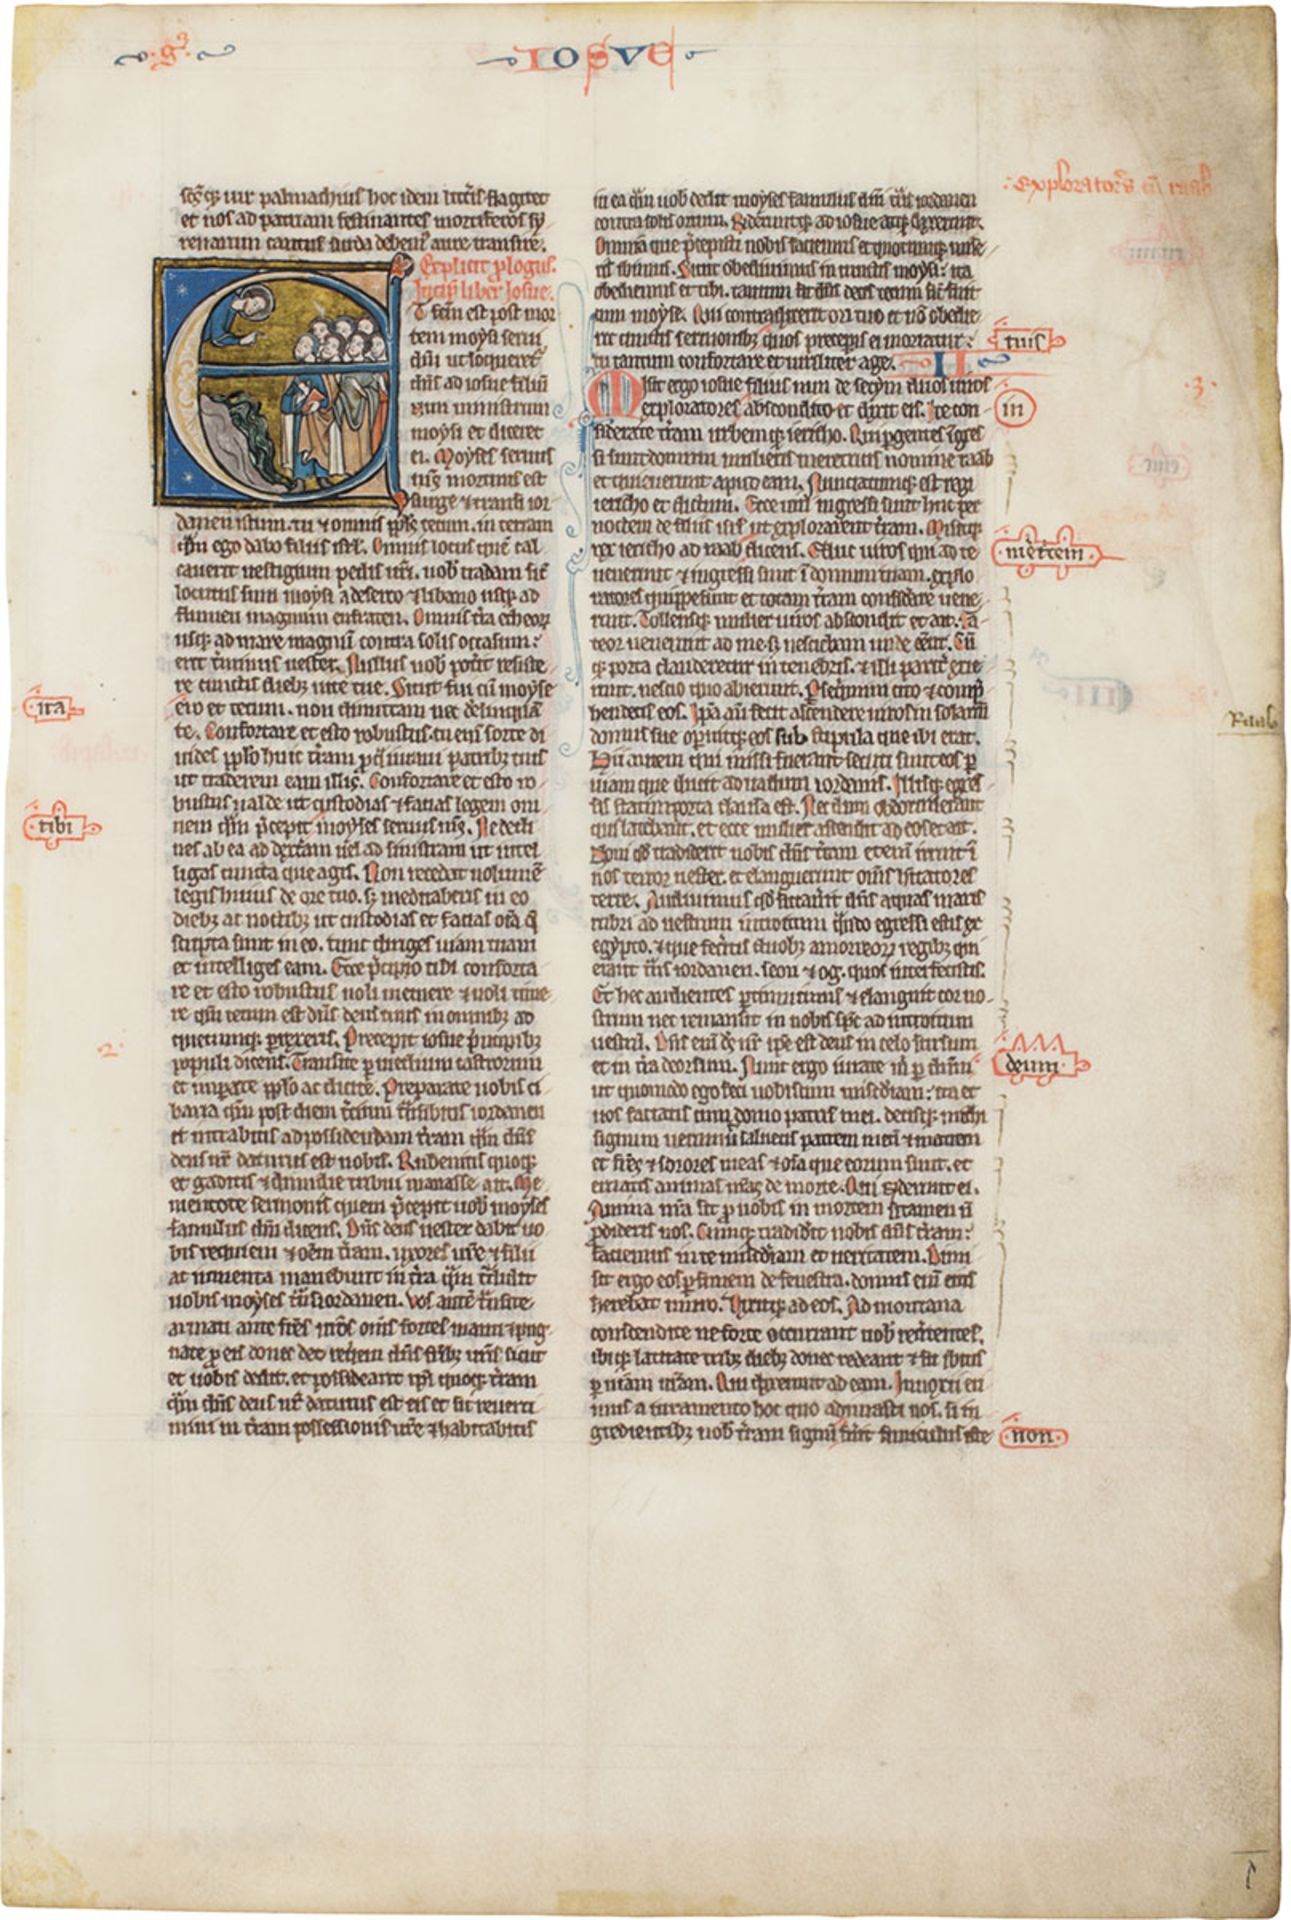 IOSVE
scs qz uir pamachius hoc idem littis flagitet
et nos ad patriam festinantes mortiferos sy
renarum cantus surda debem aure transire.
Explicit plogus.
Incip liber Iosue.
T fcm est post mor
tem moysi serui
dni ut loqueret
dns ad iosue filiu
nun ministrum
moysi et diceret
ei. Moyses seruus
ms mortuus est
surge & transi ior
danen istum. tu & omnis ppls tecum. in terram
qm ego dabo filiis isrl. Omnis locus que cal
cauerit uestigium pedis uri. uob tradam sic
locutus sum moysi a deserto & libano usqz ad
flumen magnum eufraten. Omnis tra etheorz
usqz ad mare magnu contra solis occasum:
erit tminus uester. Nullus uob potit resiste
re cunctis diebz uite tue. Sicut fui cu moyse
ero et tecum. non dimittam nec derelinqua
te. Confortare et esto robustus. tu eni sorte di
uides pplo huic tram p qua iuraui patribz tuis
ut traderem eam illis. Confortare et esto ro
bustus ualde ut custodias & facias legem om
nem qm pcepit moyses seruus ms. Ne decli
nes ab ea ad dextam uel ad sinistram ut intel
ligas cuncta que agis. Non recedat uolume
legis huius de ore tuo. sz meditaberis in eo
diebz ac noctibz ut custodias et facias oia q
scripta sunt in eo. tunc diriges uiam tuam
et intelliges eam. Ecce pcipio tibi conforta
re et esto robustus noli metuere & noli time
re qm tecum est dns deus tuus in omnibz ad
quecumqz prexeris. Precepit iosue principibz
populi dicens. Transite p medium castrorum
et imperate pplo ac dicite. Preparate uobis ci
baria qm post diem tcium tnsibitis iordanen
et intrabitis ad possidendam tram qm dns
deus ur daturus est uobis. Rubenitis quoqz
et gaditis & dimidie tribui manasse ait. Me
mentote sermonis quem pcepit uob moyses
famulus dni dicens. Dns deus uester dabit uo
bis requiem & oem tram. uxores ure & filii
ac iumenta manebunt in tra qm tdidit
uobis moyses tns iordanen. Vos aute tnsite
armati ante fres uros oms fortes manu & pug
nate p eis donec det reqiem dns fribz uris sicut
et uobis dedit. et possideant ipi quoqz tram
qm dns deus ur daturus est eis et sic reuerti
mini in tram possessionis ure & habitabitis
in ea qm uob dedit moyses famulus dni tns iordanen
contra solis ortum. Rnderuntqz ad iosue atqz dixerunt.
Omnia que pcepisti nobis faciemus et quocumqz mise
ris ibimus. Sicut obediuimus in cunctis moysi: ita
obediemus et tibi. tantum sit dns deus tecum sic fuit
cum moyse. Qui contradixerit ori tuo et no obedie
rit cunctis sermonibz quos preceperis ei moriatur:
tu tantum confortare et uiriliter age. II
Misit ergo iosue filius nun de setym duos uiros
exploratores abscondito et dixit eis. Ite con
siderate tram urbemqz iericho. Qui pgentes igres
si sunt domum mulieris meretricis nomine raab
et quieuerunt apud eam. Nunciatumqz est regi
iericho et dictum. Ecce uiri ingressi sunt huc per
noctem de filiis isrl ut explorarent tram. Misitqz
rex iericho ad raab dicens. Educ uiros qui ad te
uenerunt & ingressi sunt i domum tuam. explo
ratores quippe sunt et totam tram considerare uene
runt. Tollensqz mulier uiros abscondit et ait. Fa
teor uenerunt ad me. sz nesciebam unde eent. Cu
qz porta clauderetur in tenebris. & illi parit exie
runt. nescio quo abierunt. Psequimini cito & compr
hendetis eos. Ipa aut fecit ascendere uiros in solarium
domus sue opuitqz eos sub stipula que ibi erat.
Hii autem qui missi fuerant secuti sunt eos p
uiam que ducit ad uadum iordanis. Illisqz egres
sis statim porta clausa est. Nec dum obdormierant
qui latebant. et ecce mulier ascendit ad eos et ait.
Noui qd tradiderit uobis dns tram etenim irruit i
nos terror uester. et elanguerunt oms hitatores
terre. Audiuimus qd siccauerit dns aquas maris
rubri ad uestrum introitum qndo egressi estis ex
egypto. & que feceritis duobz amorreorz regibz qui
erant tns iordanen. seon & og. quos interfecistis.
Et hec audientes ptimuimus & elanguit cor no
strum nec remansit in nobis spc ad introitum
uestru. Dns eni ds ur ipe est deus in celo sursum
et in tra deorsum. Nunc ergo iurate m p dnm
ut quomodo ego feci uobiscum miscdiam: ita et
uos faciatis cum domo patris mei. detisqz michi
signum uerum ut saluetis patrem meu & matrem
et fres & sorores meas & oia que eorum sunt. et
eruatis animas nras de morte. Qui rnderunt ei.
Anima nra sit p uobis in mortem si tamen n
pdideris nos. Cumqz tradidit nobis dns tram:
faciemus in te miscdiam et ueritatem. Dimi
sit ergo eos p funem de fenestra. domus eni eius
herebat muro. Dixitqz ad eos. Ad montana
conscendite ne forte occurrant uob reutentes.
ibiqz latitate tribz diebz donec redeant & sic ibitis
p uiam uram. Qui dixerunt ad eam. Innoxii eri
mus a iuramento hoc quo adiurasti nos. si in
gredientibz nob tram signu fuit funiculus iste
Exploratores cu raab
tuis
in
3.
meretricem
Raab
ita
tibi
2.
deum
non